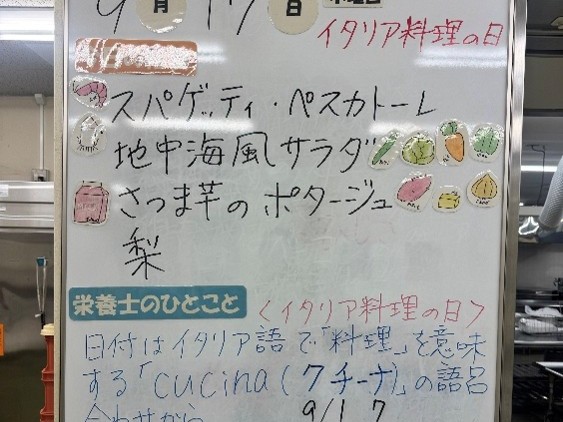 9月17日
イタリア料理の日
スパゲッティ・ペスカトーレ
地中海風サラダ
さつま芋のポタージュ
梨
栄養士のひとこと 〈イタリア料理の日〉
日付はイタリア語で「料理」を意味
する「cucina(クチーナ)」の語呂
合わせから
9/17